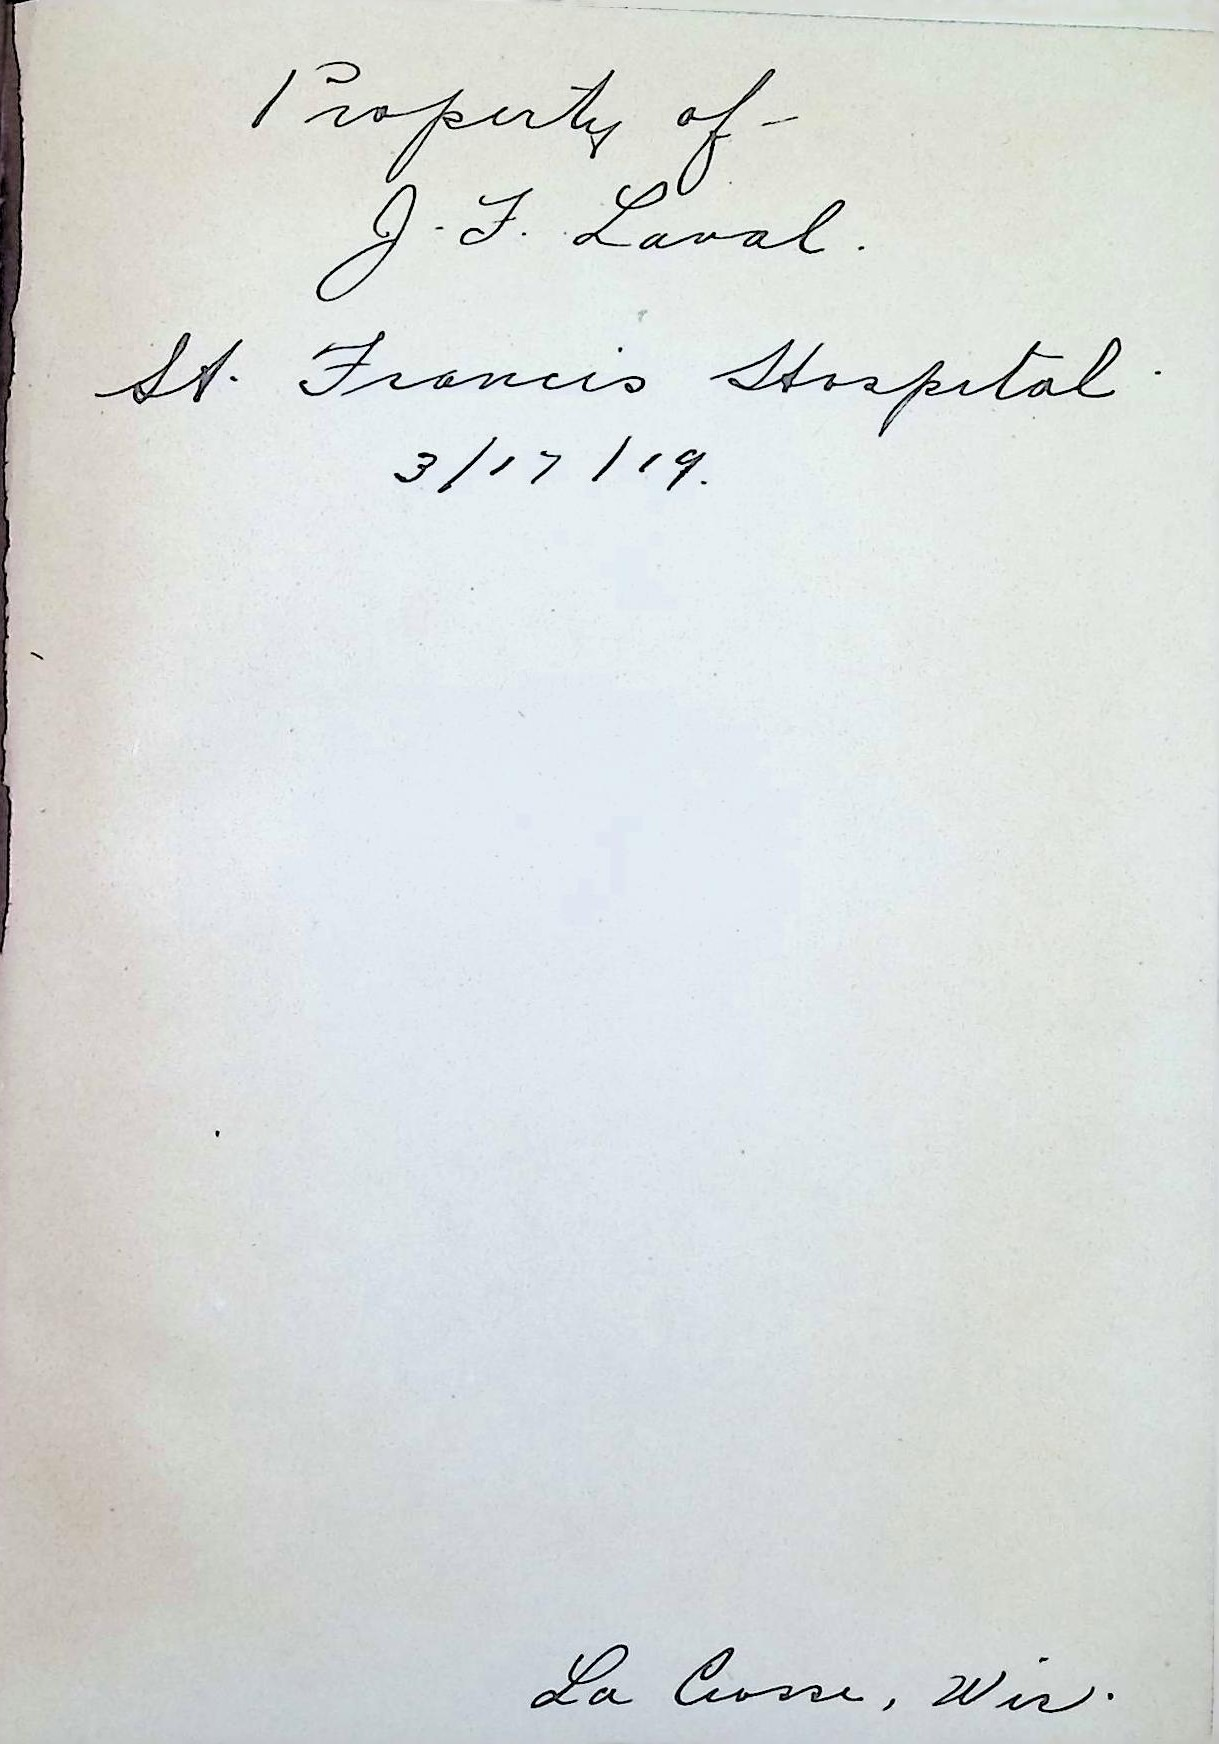 Property of -
J. F. Laval.
St. Francis Hospital.
3/17/19.
La Crosse, Wis.